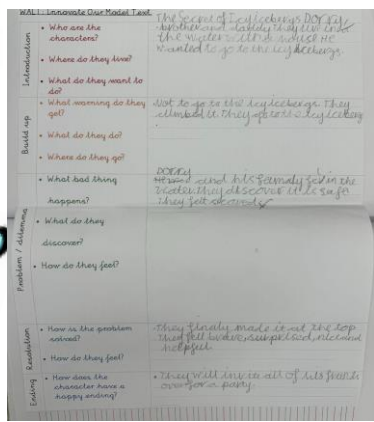 WALT: Innovate Our Model Text
Introduction
• Who are the characters?
• Where do they live?
• What do they want to do?
The Secret of Icy Icebergs DORRY
brother and daddy They live into
the water with a house. He
wanted to go to the icy icebergs
Build up
• What warning do they get?
• What do they do?
• Where do they go?
Not to go to the icy icebergs. They
climbed it. They go to the icy iceberg
Problem / dilemma
• What bad thing happens?
• What do they discover?
• How do they feel?
DORRY
and his family fell in the
water. they discover it is safe
They felt
Resolution
• How is the problem solved?
• How do they feel?
They finaly made it at the top
They fell brave, surprised, nice and
helpful
Ending
• How does the character have a happy ending?
• They will invite all of his
over for a party.